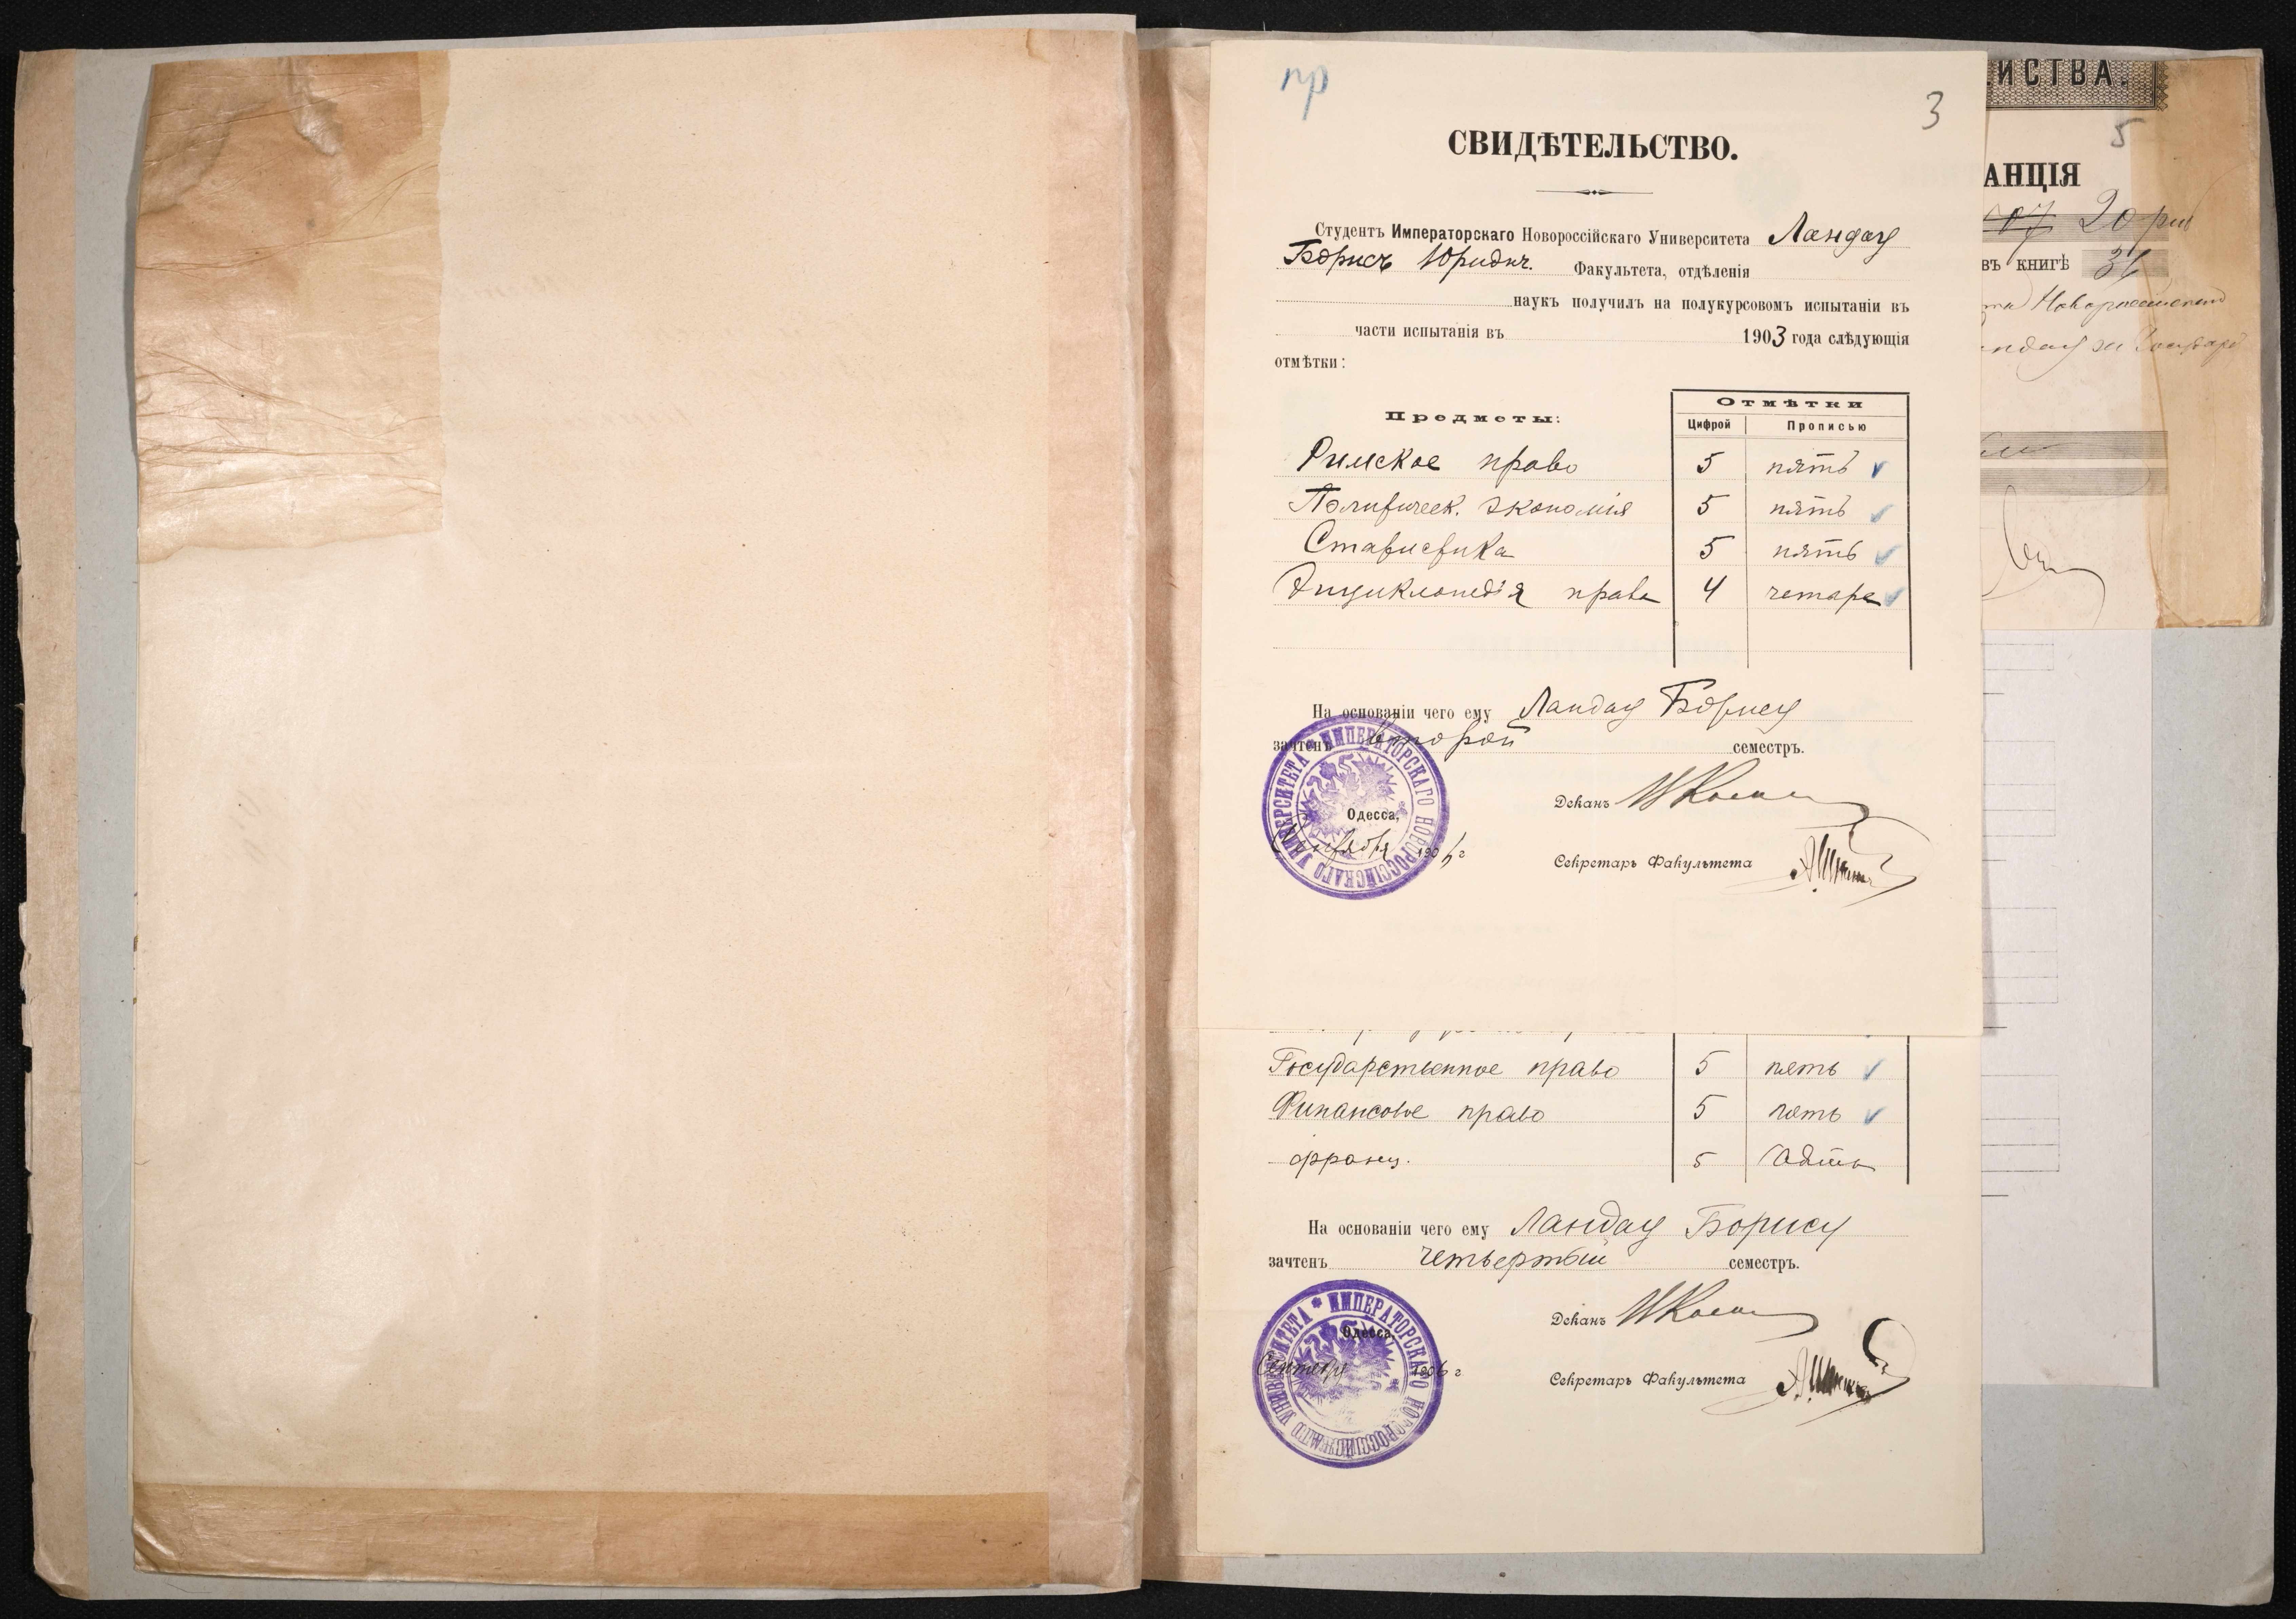 пр
3
СВИДѢТЕЛЬСТВО.
Студентъ Императорскаго Новороссійскаго Университета Ландау
Борисъ Юридич. Факультета, отдѣленія
наукъ получилъ на полукурсовомъ испытаніи въ
части испытанія въ 1903 года слѣдующія
отмѣтки:
Предметы:
Отмѣтки
Цифрой Прописью
Римское право 5 пять
Политическ. экономія 5 пять
Статистика 5 пять
Энциклопедія права 4 четыре
На основаніи чего ему Ландау Борису
зачтенъ второй семестръ.
Деканъ
Одесса,
190 г
Секретарь Факультета
ИМПЕРАТОРСКАГО НОВОРОССІЙСКАГО УНИВЕРСИТЕТА
Государственное право 5 пять
Финансовое право 5 пять
франц. 5 пять
На основаніи чего ему Ландау Борису
зачтенъ четвертый семестръ.
Деканъ
Одесса,
Сентября 1906 г
Секретарь Факультета
ИМПЕРАТОРСКАГО НОВОРОССІЙСКАГО УНИВЕРСИТЕТА
ЙСТВА.
5
АНЦІЯ
07 20 руб
въ книгѣ 31
Новороссійскаго